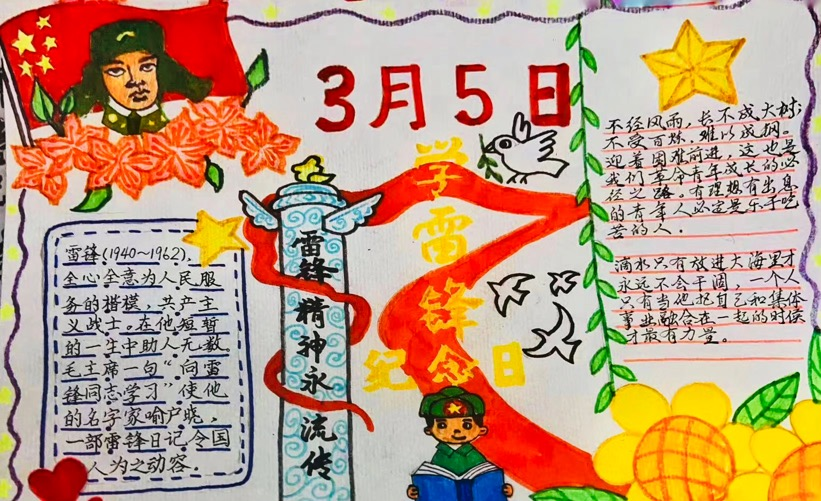 3月5日
学雷锋纪念日
雷锋精神永流传
雷锋(1940~1962),
全心全意为人民服
务的楷模,共产主
义战士。在他短暂
的一生中助人无数。
毛主席一句“向雷
锋同志学习”使他
的名字家喻户晓,
一部雷锋日记令国
人为之动容.
不经风雨,长不成大树;
不受百炼,难以成钢。
迎着困难前进,这也是
我们革命青年成长的必
径之路。有理想有出息
的青年人必定是乐于吃
苦的人.
滴水只有放进大海里才
永远不会干涸,一个人
只有当他把自己和集体
事业融合在一起的时候
才最有力量。